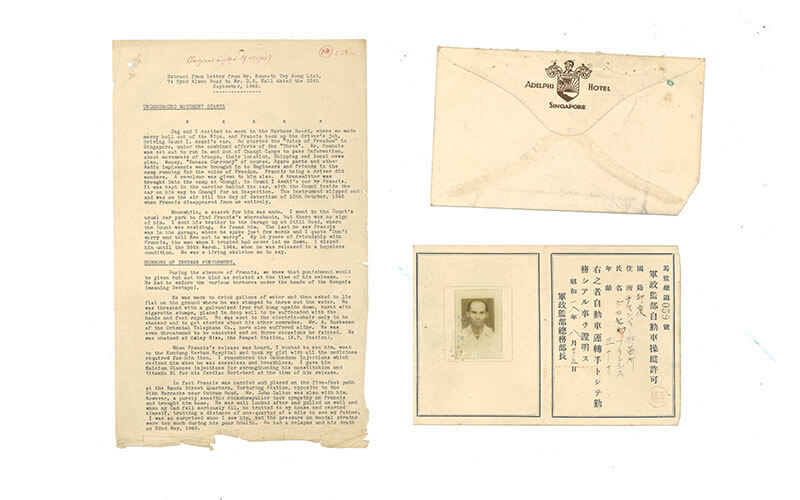 Extract from letter from Mr. Kenneth Tay Kong Liat,
74 Syed Alwee Road to Mr. D.G. Hall dated the 25th
September, 1946.
UNDERGROUND MOVEMENT STARTS
Jag and I decided to work in the Harbour Board, where we made
merry hell out of the Nips, and Francis took up the driver's job,
driving Count I. Asahi's car. So started the "Voice of Freedom" in
Singapore, under the combined efforts of the "Three". Mr. Francis
was set out to run in and out of Changi Camps to pass information,
about movements of troops, their location, Shipping and local news
also. Money, "Banana Currency" of course, Spare parts and other
Radio implements were brought in to Engineers and friends in the
camp running for the voice of Freedom. Francis being a driver did
wonders. A revolver was given to him also. A transmitter was
brought into the camp at Changi, in Count I Asahi's car by Francis.
It was kept in the carrier behind the car, with the Count inside the
car on his way to Changi for an inspection. The instrument slipped out
and was on the air till the day of detection of 10th October, 1943
when Francis disappeared from us entirely.
Meanwhile, a search for him was made. I went to the Count's
usual car park to find Francis's whereabouts, but there was no sign
of him. I sent his brother to the Garage up at Still Road, where
the Count was residing. He found him. The last he saw Francis
was in the garage, where he spoke just few words and I quote "Don't
worry and tell Ken not to worry". My 16 years of friendship with
Francis, the man whom I trusted had never let me down. I missed
him until the 26th March, 1944, when he was released in a hopeless
condition. He was a living skeleton so to say.
HORRORS OF INHUMAN PUNISHMENT.
During the absence of Francis, we knew that punishment would
be given but not the kind as related at the time of his release.
He had to endure the various tortures under the hands of the Kempels
(meaning Gestapo).
He was made to drink gallons of water and then asked to lie
flat on the ground where he was stamped to throw out the water. He
was thrashed with a galvanised iron rod hung upside down, burnt with
cigarette stumps, placed in deep well to be suffocated with the
hands and feet roped. He was sent to the electric-chair only to be
shocked and to get stories about his other comrades. Mr. A. Hackeman
of the Oriental Telephone Co., here also suffered alike. He was
even threatened to be executed and on three occasions he fainted. He
was chained at Oxley Rise, the Kempei Station, (W.P. Station).
When Francis's release was heard, I rushed to see him, went
to the Kandang Kerbau Hospital and took my girl with all the medicines
required for him then. I remembered the Cathodone Injections which
revived him when he was sleepless and breathless. I gave him
Calcium Glucose Injections for strengthening his constitution and
Vitamin B1 for his Cardiac Beri-beri at the time of his release.
In fact Francis was carried and placed on the five-foot path
at the Hands Street Quarters, Torturing Station, opposite to the
Sikh Barracks near Outram Road. Mr. John Dalton was also with him.
However, a purely sensible Rickshawpuller took sympathy on Francis
and brought him home. He was well looked after and pulled on well and
when my Dad fell seriously ill, he trotted to my house and exerted
himself, trotting a distance of one-quarter of a mile to see my father.
I was so surprised when I saw him, but the pressure on mental strains
were too much during his poor health. He had a relapse and his death
on 22nd May, 1945.
ADELPHI HOTEL
SINGAPORE
馬監總第059號
軍政監部自動車操縱許可
國籍 印度
住所
氏名
年齡 三十才
右之者自動車運轉手トシテ勤
務シアル事ヲ證明ス
昭和一八年 月十三日
軍政監部總務部長